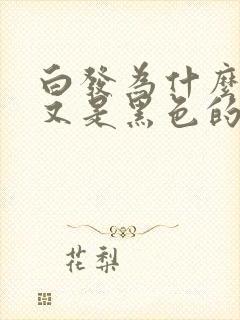 白發為什麼
又是黑色的
花梨